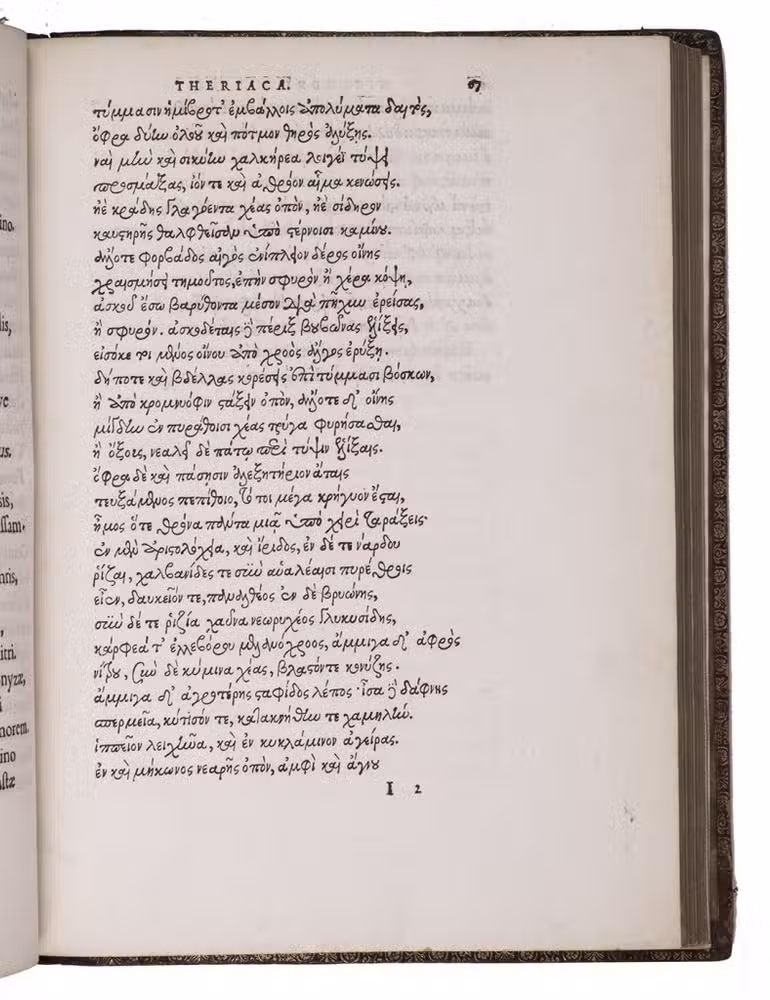 THERIACA. 67
τύμμασιν ἡμίβροτ' ἐμβάλλοις ἀπολύματα δαιτός,
ὄφρα δύην ὀλοοῦ καὶ πότμον θηρὸς ἀλύξῃς.
ναὶ μὴν καὶ σικύην χαλκήρεα λοιγέϊ τύψει
προσμάξας, ἰόν τε καὶ ἀθρόον αἷμα κενώσεις.
ἠὲ κράδης γλαγόεντα χέας ὀπόν, ἠὲ σίδηρον
καυστηρῆς θαλφθεῖσαν ὑπὸ στέρνοισι καμίνου.
ἄλλοτε φορβάδος αἰγὸς ἐνίπλειον δέρος οἴνης
χραισμήσει τημοῦτος, ἐπὴν σφυρὸν ἢ χέρα κόψῃ,
ἀσκοῦ ἔσω βαρύθοντα μέσον διὰ πῆχυν ἐρείσας,
ἢ σφυρόν. ἀσκοδέταις δὲ πέριξ βουβῶνας ἑλίξεις,
εἰσόκε τοι μένος οἴνου ἀπὸ χροὸς ἄλγος ἐρύξῃ.
δή ποτε καὶ βδέλλας κορέσεις ἐπὶ τύμμασι βόσκων,
ἢ ἀπὸ κρομνυόφιν στάξειν ὀπόν, ἄλλοτε δ' οἴνης
μίγδην ἐν πυράθοισι χέας τρύγα φυρήσασθαι,
ἢ ὄξους, νεαλεῖ δὲ πάτῳ περὶ τύψιν ἑλίξαις.
ὄφρα δὲ καὶ πάσῃσιν ἀλεξητήριον ἄταις
τευξάμενος πεπίθοιο, τό τοι μέγα κρήγυον ἔσται,
ἦμος ὅτε θρόνα πολύτα μιᾷ ὑπὸ χειρὶ ταράξεις·
ἐν μὲν ἀριστολόχεια, καὶ ἴριδος, ἐν δέ τε νάρδου
ῥίζαι, χαλβανίδες τε σὺν αὐαλέαισι πυρέθροις
εἶεν, δαυκεῖόν τε, παναλθέος ἐν δὲ βρυώνης,
σὺν δέ τε ῥιζία χαῦνα νεωρυχέος γλυκυσίδης,
κάρφεά τ' ἑλλεβόρου μελανόχροος, ἄμμιγα δ' ἀφρὸς
νίτρου, σὺν δὲ κύμινα χέας, βλαστόν τε κονύζης.
ἄμμιγα δ' ἀγροτέρης σταφίδος λέπος· ἶσα δὲ δάφνης
σπερμεῖα, κύτισόν τε, κατακνήθειν τε χαμηλήν.
ἱππεῖον λειχῆνα, καὶ ἐν κυκλάμινον ἀγείρας.
ἐν καὶ μήκωνος νεαρῆς ὀπόν, ἀμφὶ καὶ ἄγνου
I 2